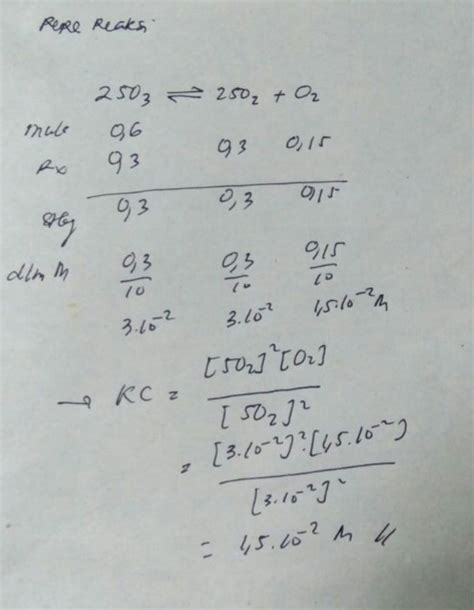 Reaksi
2SO₃ ⇌ 2SO₂ + O₂
mula 0,6
Rx 0,3 0,3 0,15
stbg 0,3 0,3 0,15
dlm M 0,3/10 0,3/10 0,15/10
3.10⁻² 3.10⁻² 1,5.10⁻² M
→ KC = [SO₂]²[O₂] / [SO₂]²
= [3.10⁻²]².[1,5.10⁻²] / [3.10⁻²]²
= 1,5.10⁻² M